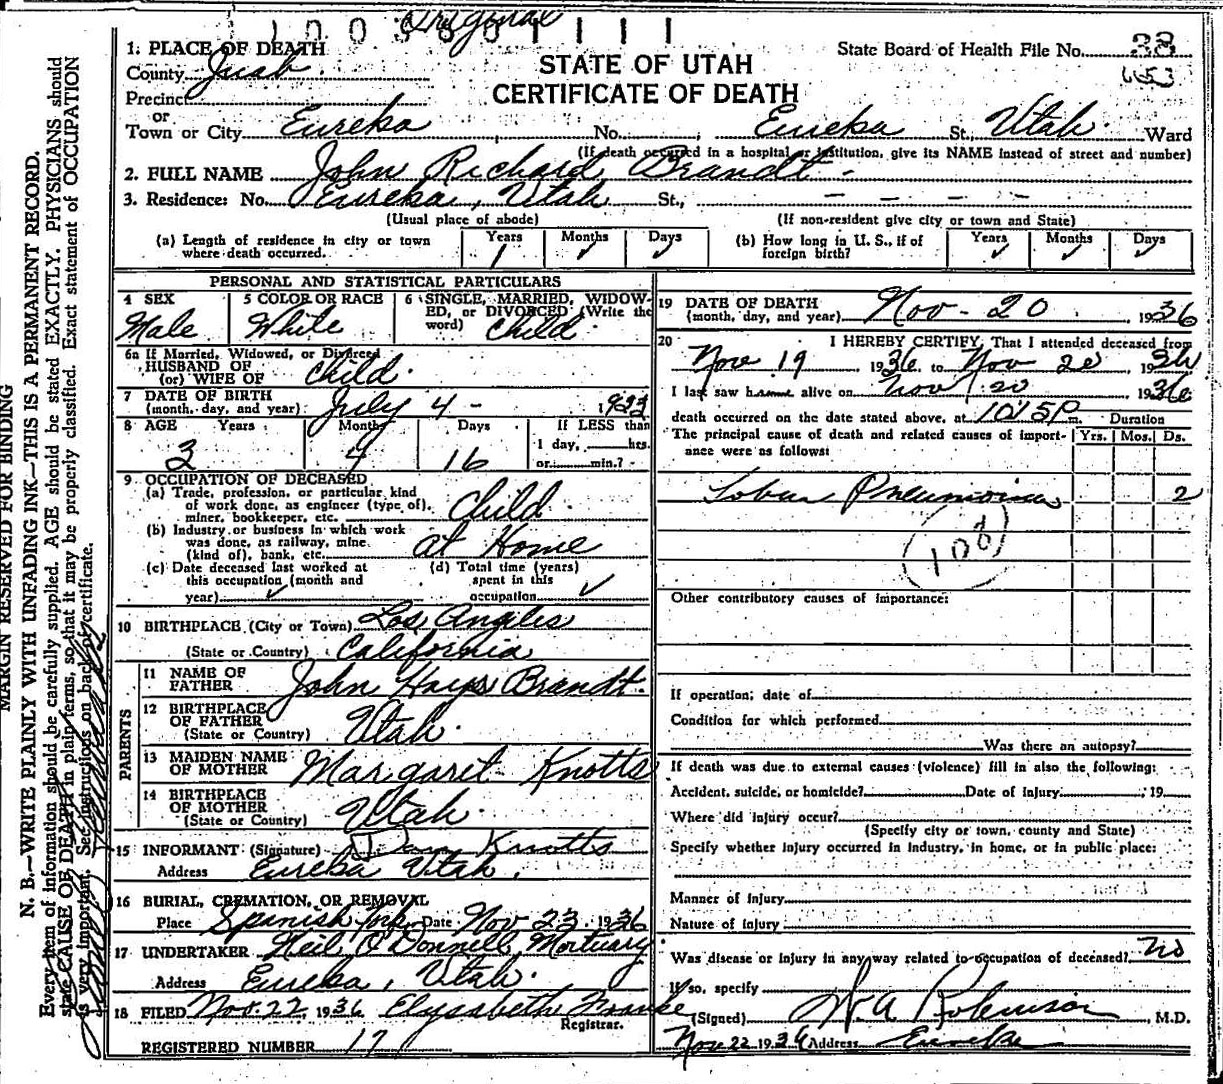 Original
1. PLACE OF DEATH
County Juab
Precinct
or
Town or City Eureka No. , Eureka St., Utah. Ward
State Board of Health File No. 38
STATE OF UTAH
CERTIFICATE OF DEATH
(If death occurred in a hospital or institution, give its NAME instead of street and number)
2. FULL NAME John Richard Brandt -
3. Residence: No. Eureka, Utah St., - - - -
(Usual place of abode) (If non-resident give city or town and State)
(a) Length of residence in city or town where death occurred. Years 1 Months ✓ Days ✓
(b) How long in U. S., if of foreign birth? Years ✓ Months ✓ Days ✓
PERSONAL AND STATISTICAL PARTICULARS
4 SEX Male
5 COLOR OR RACE White
6 SINGLE, MARRIED, WIDOWED, OR DIVORCED (Write the word) Child.
6a If Married, Widowed, or Divorced
HUSBAND OF
(or) WIFE OF Child.
7 DATE OF BIRTH
(month, day, and year) July 4 - 1933
8 AGE Years 3 Months 4 Days 16
If LESS than
1 day, hrs.
or min.?
9 OCCUPATION OF DECEASED
(a) Trade, profession, or particular kind
of work done, as engineer (type of),
miner, bookkeeper, etc. Child.
(b) Industry or business in which work
was done, as railway, mine
(kind of), bank, etc. at Home
(c) Date deceased last worked at
this occupation (month and
year) ✓
(d) Total time (years)
spent in this
occupation ✓
10 BIRTHPLACE (City or Town) Los Angeles
(State or Country) California
PARENTS
11 NAME OF FATHER John Hays Brandt.
12 BIRTHPLACE OF FATHER
(State or Country) Utah.
13 MAIDEN NAME OF MOTHER Margaret Knotts
14 BIRTHPLACE OF MOTHER
(State or Country) Utah.
15 INFORMANT (Signature) Knotts
Address Eureka Utah.
16 BURIAL, CREMATION, OR REMOVAL
Place Spanish Fork Date Nov 23 1936
17 UNDERTAKER Heil O'Donnell Mortuary
Address Eureka, Utah.
18 FILED Nov. 22 1936 Elysabeth Franke
Registrar.
REGISTERED NUMBER 17
19 DATE OF DEATH
(month, day, and year) Nov - 20 1936
20 I HEREBY CERTIFY, That I attended deceased from
Nov 19 1936 to Nov 20 1936
I last saw him alive on Nov 20 1936
death occurred on the date stated above, at 10:15P m.
The principal cause of death and related causes of importance were as follows:
Duration
Yrs. Mos. Ds.
Lobar Pneumonia 2
108
Other contributory causes of importance:
If operation, date of
Condition for which performed
Was there an autopsy?
If death was due to external causes (violence) fill in also the following:
Accident, suicide, or homicide? Date of injury , 19
Where did injury occur?
(Specify city or town, county and State)
Specify whether injury occurred in industry, in home, or in public place:
Manner of injury
Nature of injury
Was disease or injury in any way related to occupation of deceased? no
If so, specify
(Signed) W. A Robinson , M.D.
Nov 22 1936 Address Eureka
MARGIN RESERVED FOR BINDING
N. B.—WRITE PLAINLY WITH UNFADING INK—THIS IS A PERMANENT RECORD.
Every item of information should be carefully supplied. AGE should be stated EXACTLY. PHYSICIANS should
state CAUSE OF DEATH in plain terms, so that it may be properly classified. Exact statement of OCCUPATION
is very important. See instructions on back of certificate.